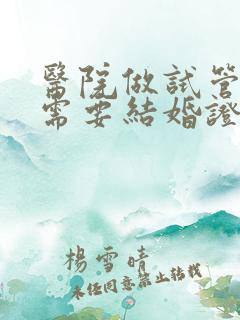 醫院做試管
需要結婚證
楊雪晴
未任同意禁止转载